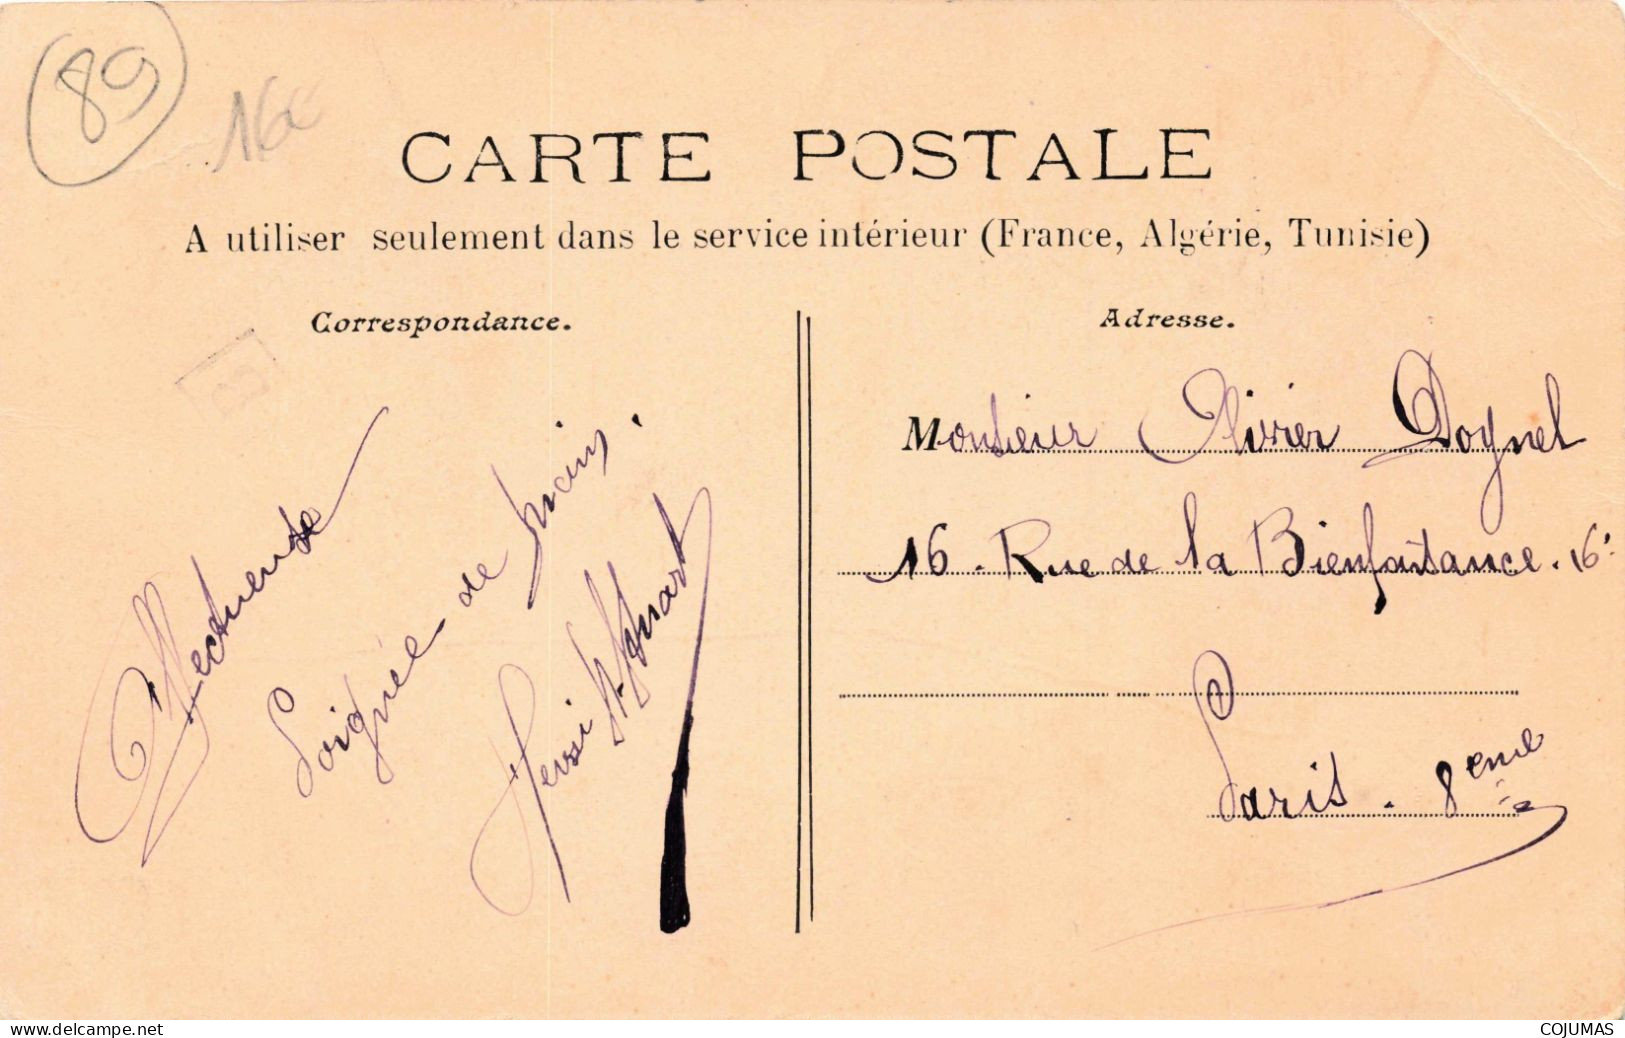 89
16€
CARTE POSTALE
A utiliser seulement dans le service intérieur (France, Algérie, Tunisie)
Correspondance.
Adresse.
B
Affectueuse
Poignée de main.
Henri
Monsieur Olivier Doynel
16. Rue de la Bienfaisance. 16
Paris. 8eme
www.delcampe.net
COJUMAS